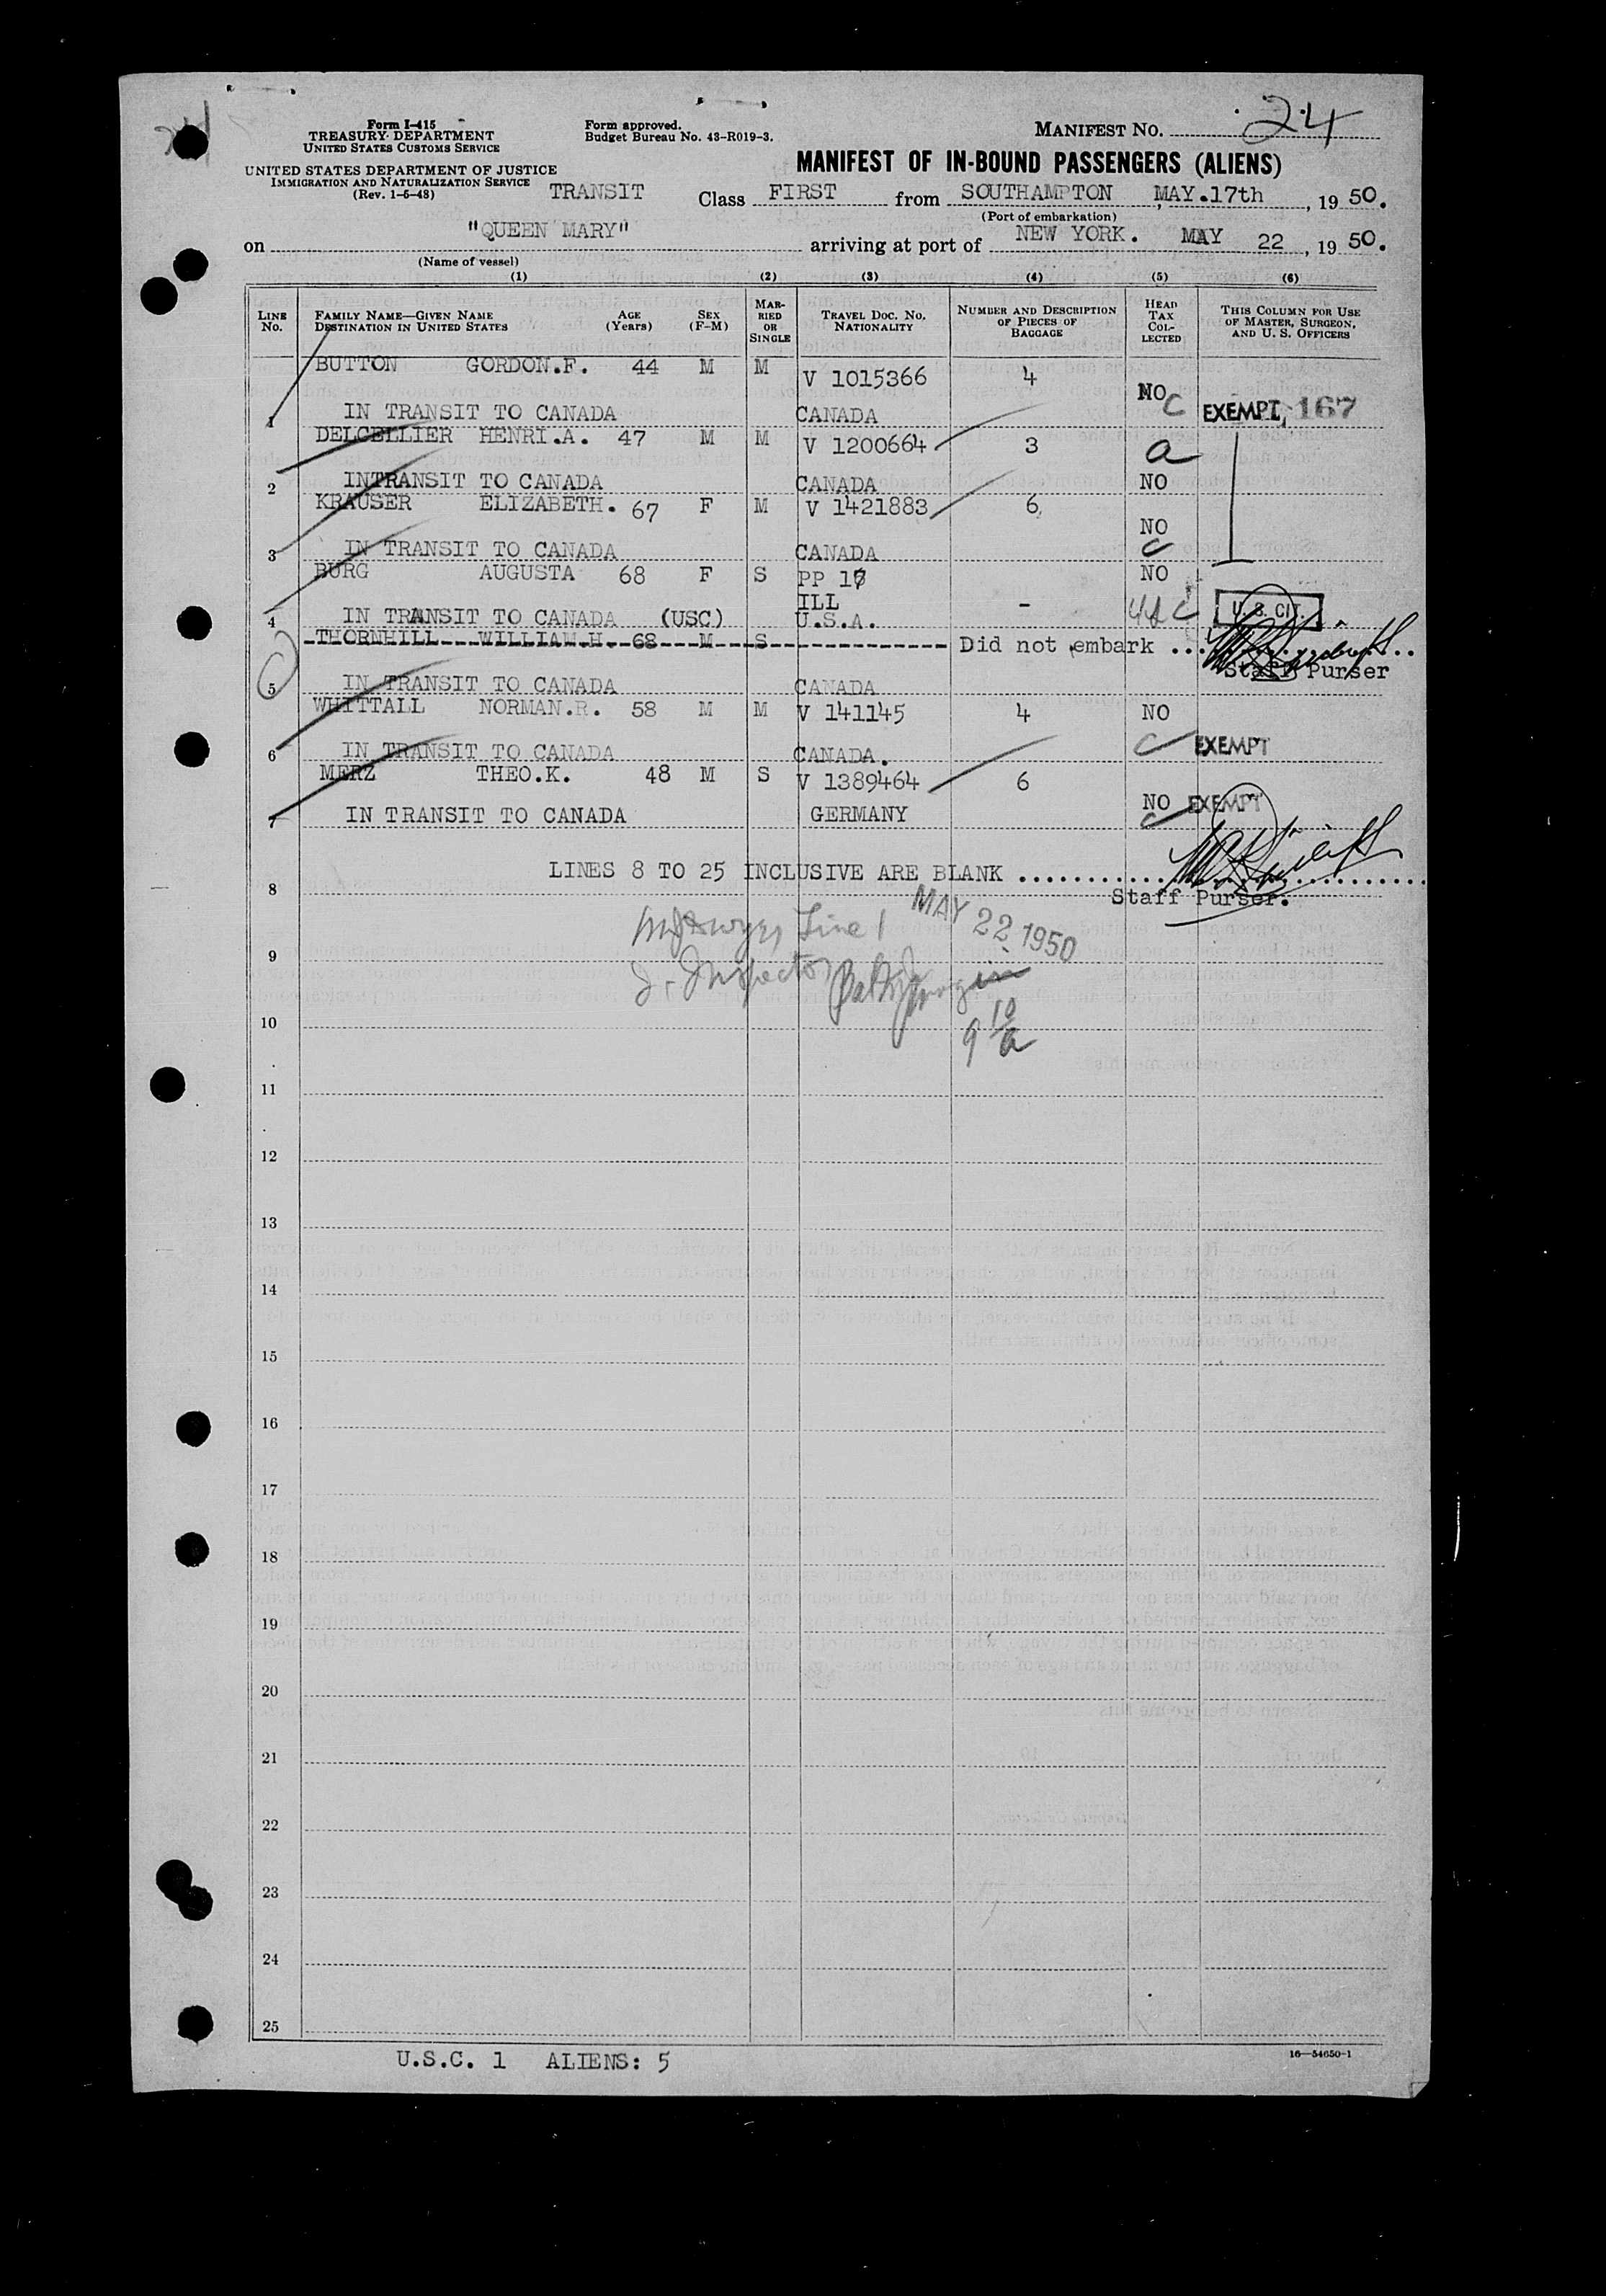 Form I-415
TREASURY DEPARTMENT
UNITED STATES CUSTOMS SERVICE
Form approved.
Budget Bureau No. 43-R019-3.
MANIFEST NO. 24
UNITED STATES DEPARTMENT OF JUSTICE
IMMIGRATION AND NATURALIZATION SERVICE
(Rev. 1-5-48)
MANIFEST OF IN-BOUND PASSENGERS (ALIENS)
TRANSIT Class FIRST from SOUTHAMPTON, MAY.17th, 19 50.
(Port of embarkation)
on "QUEEN MARY" arriving at port of NEW YORK. MAY 22, 19 50.
(Name of vessel)
(1) (2) (3) (4) (5) (6)
LINE NO. FAMILY NAME—GIVEN NAME DESTINATION IN UNITED STATES AGE (Years) SEX (F-M) MARRIED OR SINGLE TRAVEL DOC. NO. NATIONALITY NUMBER AND DESCRIPTION OF PIECES OF BAGGAGE HEAD TAX COLLECTED THIS COLUMN FOR USE OF MASTER, SURGEON, AND U. S. OFFICERS
BUTTON GORDON.F. 44 M M V 1015366 4 NO
1 IN TRANSIT TO CANADA CANADA C EXEMPT, 167
DELCELLIER HENRI.A. 47 M M V 1200664 3 a
2 INTRANSIT TO CANADA CANADA NO
KRAUSER ELIZABETH. 67 F M V 1421883 6 NO
3 IN TRANSIT TO CANADA CANADA C
BURG AUGUSTA 68 F S PP 17 NO
ILL -
4 IN TRANSIT TO CANADA (USC) U.S.A. C U. S. CIT.
THORNHILL WILLIAM.H. 68 M S Did not embark ...
Staff Purser
5 IN TRANSIT TO CANADA CANADA
WHITTALL NORMAN.R. 58 M M V 141145 4 NO
6 IN TRANSIT TO CANADA CANADA. C EXEMPT
MERZ THEO.K. 48 M S V 1389464 6
NO EXEMPT
7 IN TRANSIT TO CANADA GERMANY C
LINES 8 TO 25 INCLUSIVE ARE BLANK ............
8 Staff Purser.
Line 1 MAY 22 1950
9
Inspector
10
9 10 a
11
12
13
14
15
16
17
18
19
20
21
22
23
24
25
U.S.C. 1 ALIENS: 5
16—54650-1